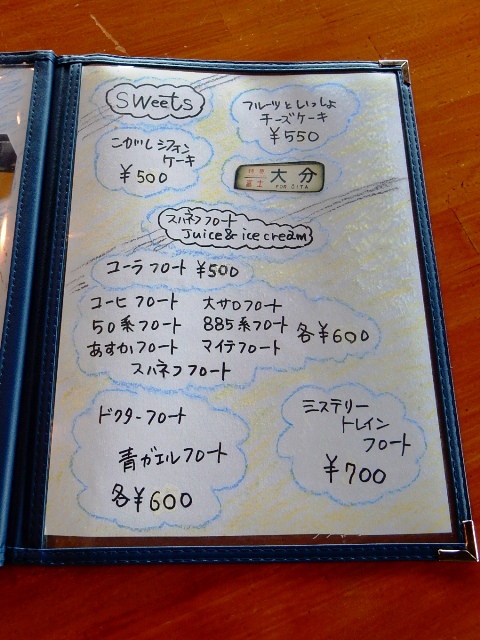 Sweets
フルーツといっしょ
チーズケーキ
¥550
こがしシフォン
ケーキ
¥500
特急
富士
大分
FOR OITA
スハネフフロート
Juice & ice cream
コーラフロート ¥500
コーヒフロート 大サロフロート
50系フロート 885系フロート 各¥600
あすかフロート マイテフロート
スハネフフロート
ドクターフロート
青ガエルフロート
各¥600
ミステリー
トレイン
フロート
¥700